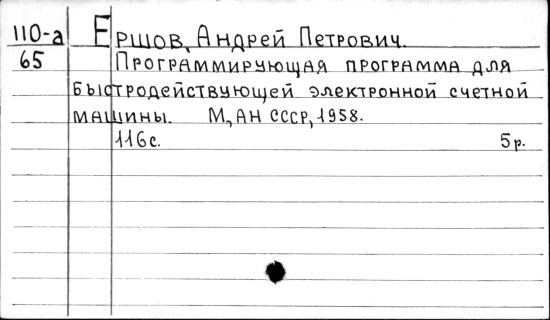 110-а Ершов, Андрей Петрович.
65 Программирующая программа для
быстродействующей электронной счетной
машины. М, АН СССР, 1958.
116с. 5р.